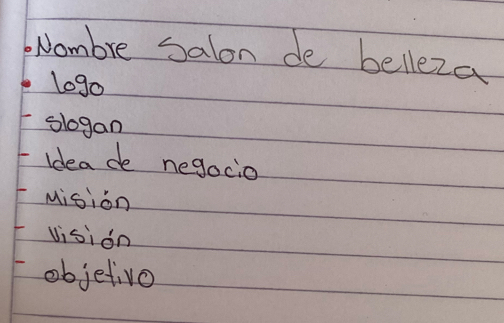 • Nombre Salon de belleza
• logo
- slogan
- Idea de negocio
- Misión
- Visión
- objetivo